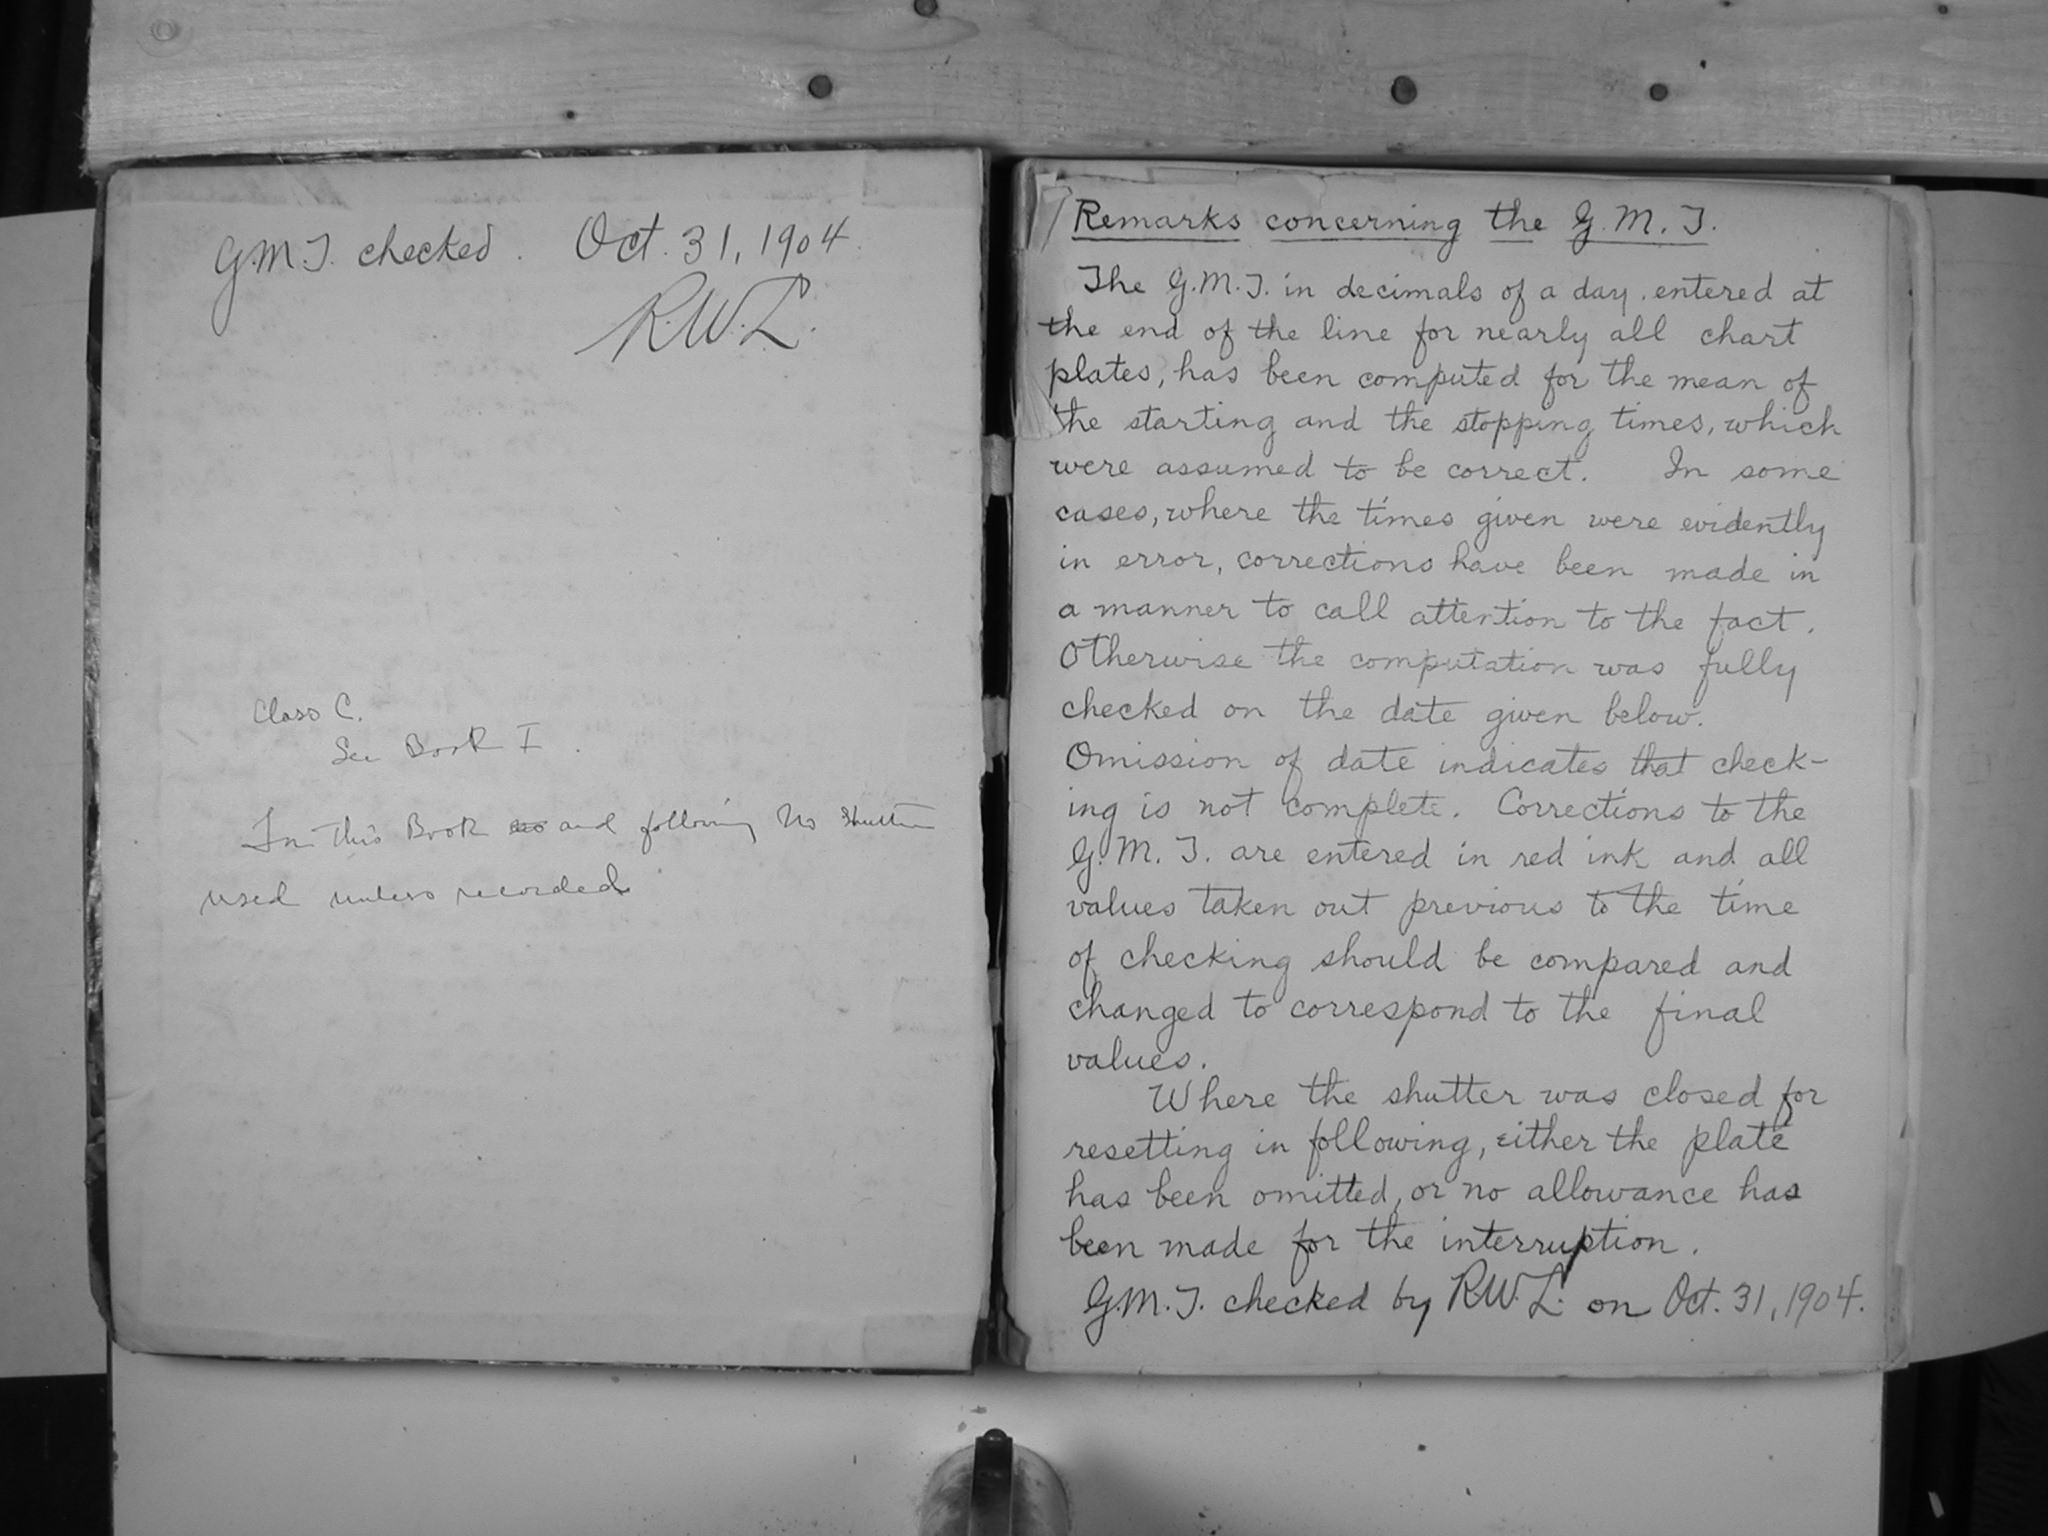 G.M.T. checked. Oct. 31, 1904.
R.W.L.
Class C.
See Book I.
In this Book and following no shutter
used unless recorded
Remarks concerning the G.M.T.
The G.M.T. in decimals of a day, entered at
the end of the line for nearly all chart
plates, has been computed for the mean of
the starting and the stopping times, which
were assumed to be correct. In some
cases, where the times given were evidently
in error, corrections have been made in
a manner to call attention to the fact.
Otherwise the computation was fully
checked on the date given below.
Omission of date indicates that check-
ing is not complete. Corrections to the
G.M.T. are entered in red ink and all
values taken out previous to the time
of checking should be compared and
changed to correspond to the final
values.
Where the shutter was closed for
resetting in following, either the plate
has been omitted, or no allowance has
been made for the interruption.
G.M.T. checked by R.W.L. on Oct. 31, 1904.